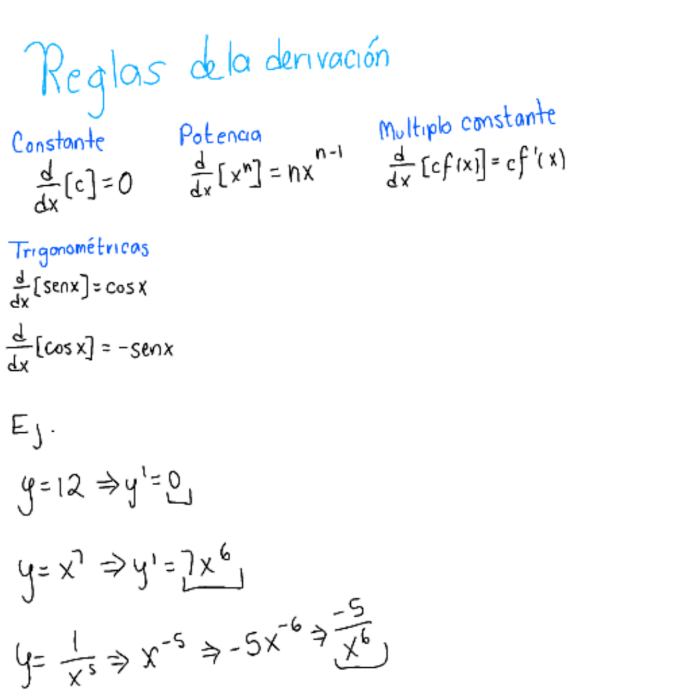 Reglas de la derivación
Constante
d/dx [c] = 0
Potencia
d/dx [xⁿ] = nxⁿ⁻¹
Multiplo constante
d/dx [cf(x)] = cf'(x)
Trigonométricas
d/dx [senx] = cosx
d/dx [cosx] = -senx
Ej.
y = 12 ⇒ y' = 0
y = x⁷ ⇒ y' = 7x⁶
y = 1/x⁵ ⇒ x⁻⁵ ⇒ -5x⁻⁶ ⇒ -5/x⁶